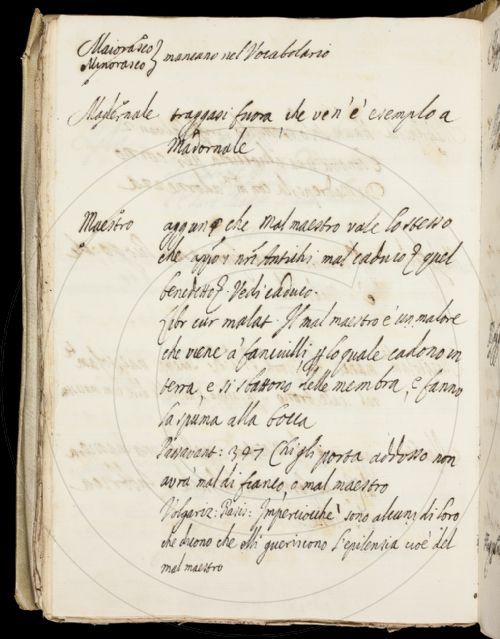 Maiorasco }
Minorasco } mancano nel Vocabolario
Madernale traggasi fuora che ven' è esempio a
Madornale
Maestro aggiung che Mal maestro vale lo stesso
che app. i nri Antichi mal caduco, e quel
benedetto. Vedi caduco.
Libr cur malat. Il mal maestro è un malore
che viene à fanciulli p lo quale cadono in
terra, e si sbattono delle membra, e fanno
la spiuma alla bocca
Passavant: 347 Chi gli porta addosso non
avrà mal di fianco, o mal maestro
Volgariz: Rasis: Imperciocchè sono alcuni di loro
che dicono che elli gueriscono l'epilensia cioè del
mal maestro